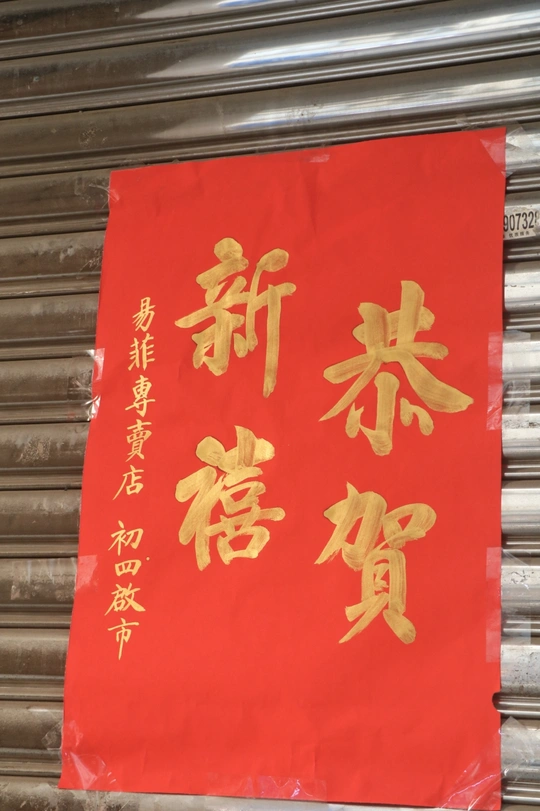 恭賀
新禧
易菲專賣店 初四啟市